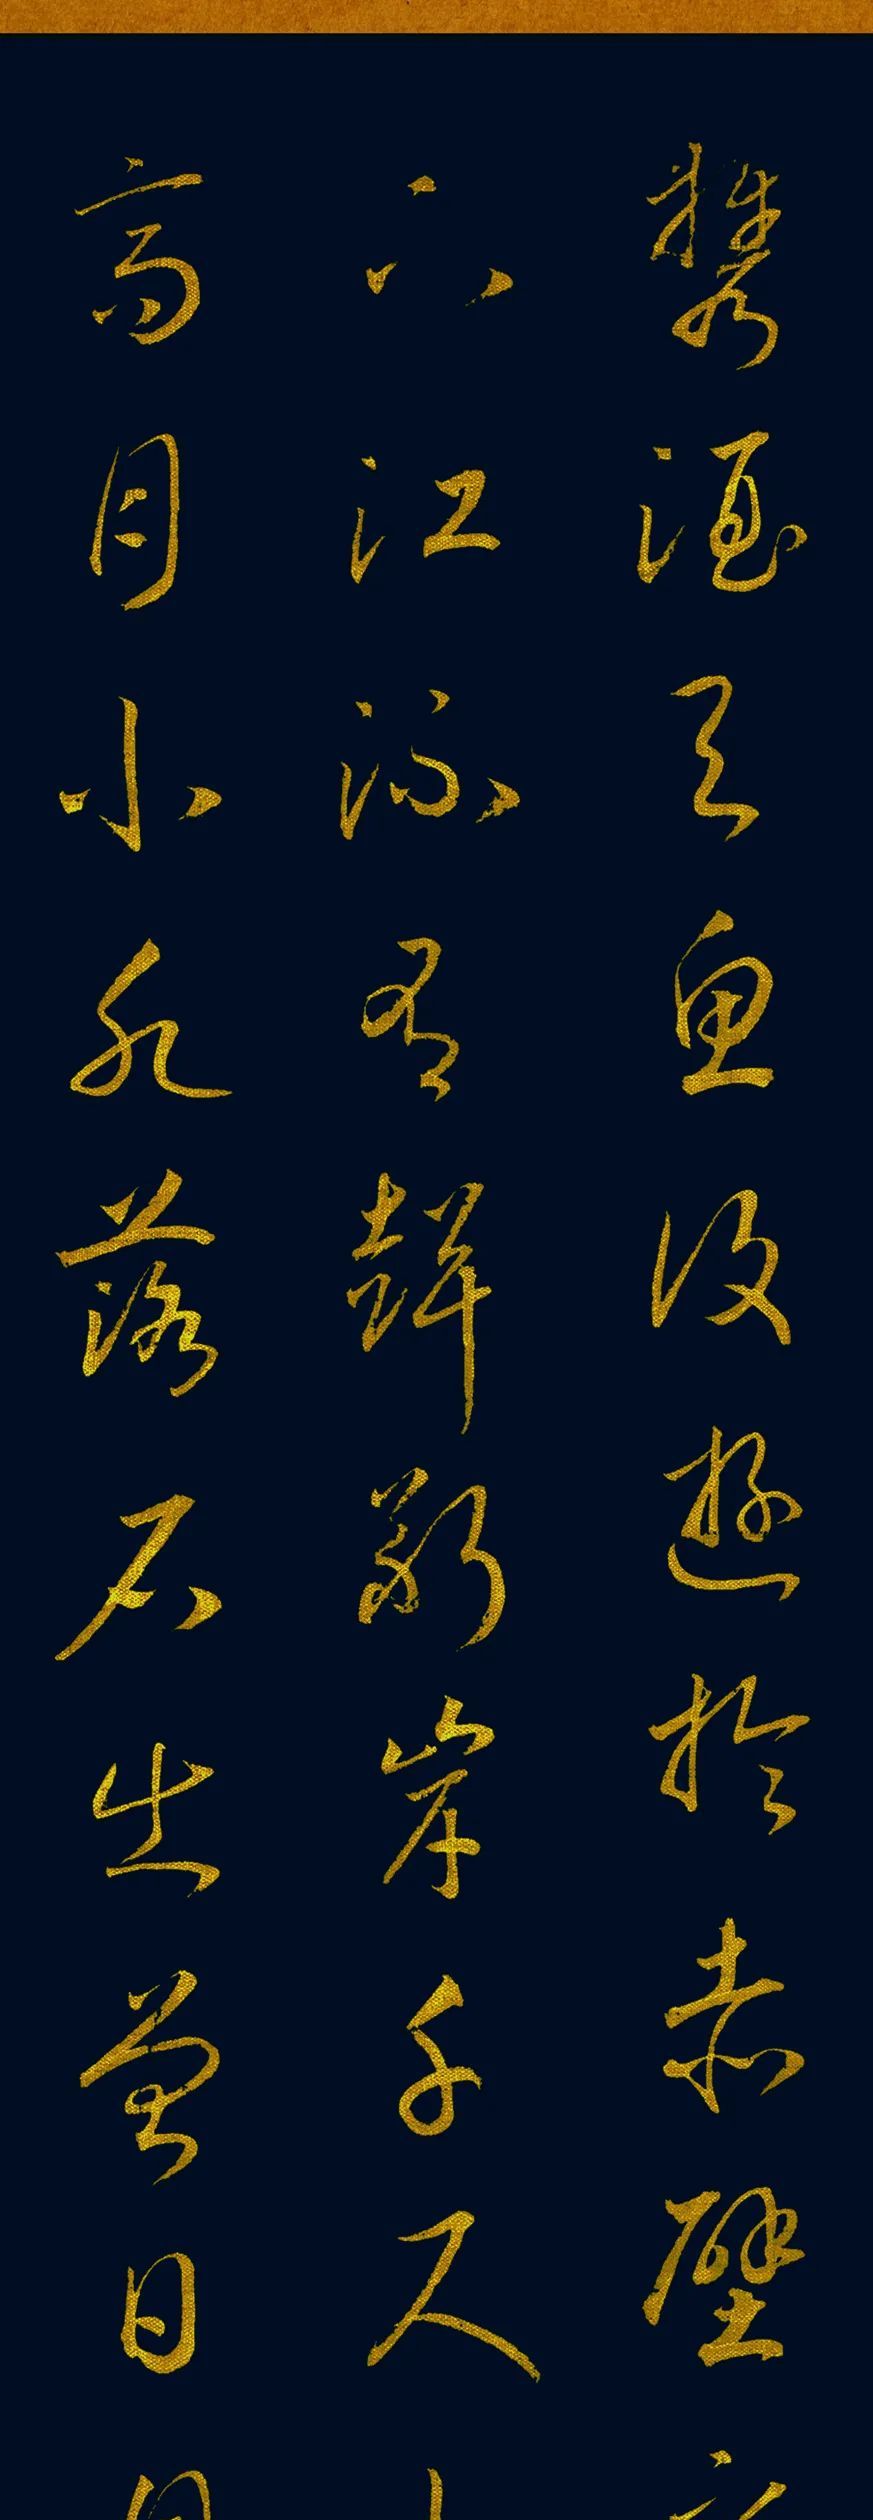 攜酒與魚復遊於赤壁
下江流有聲斷岸千尺
高月小水落石出曾日